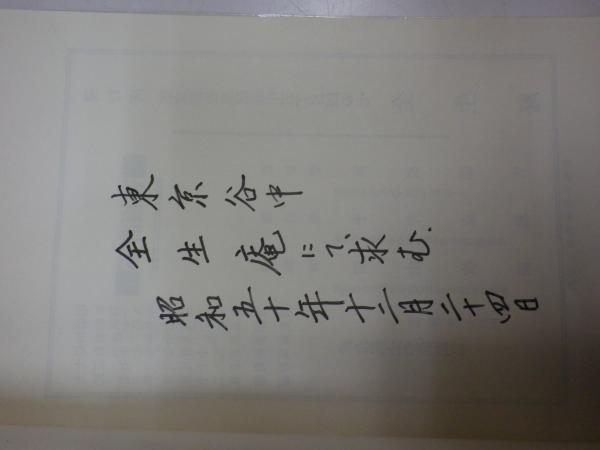 東京谷中
全生庵にて求む.
昭和五十年十二月二十四日